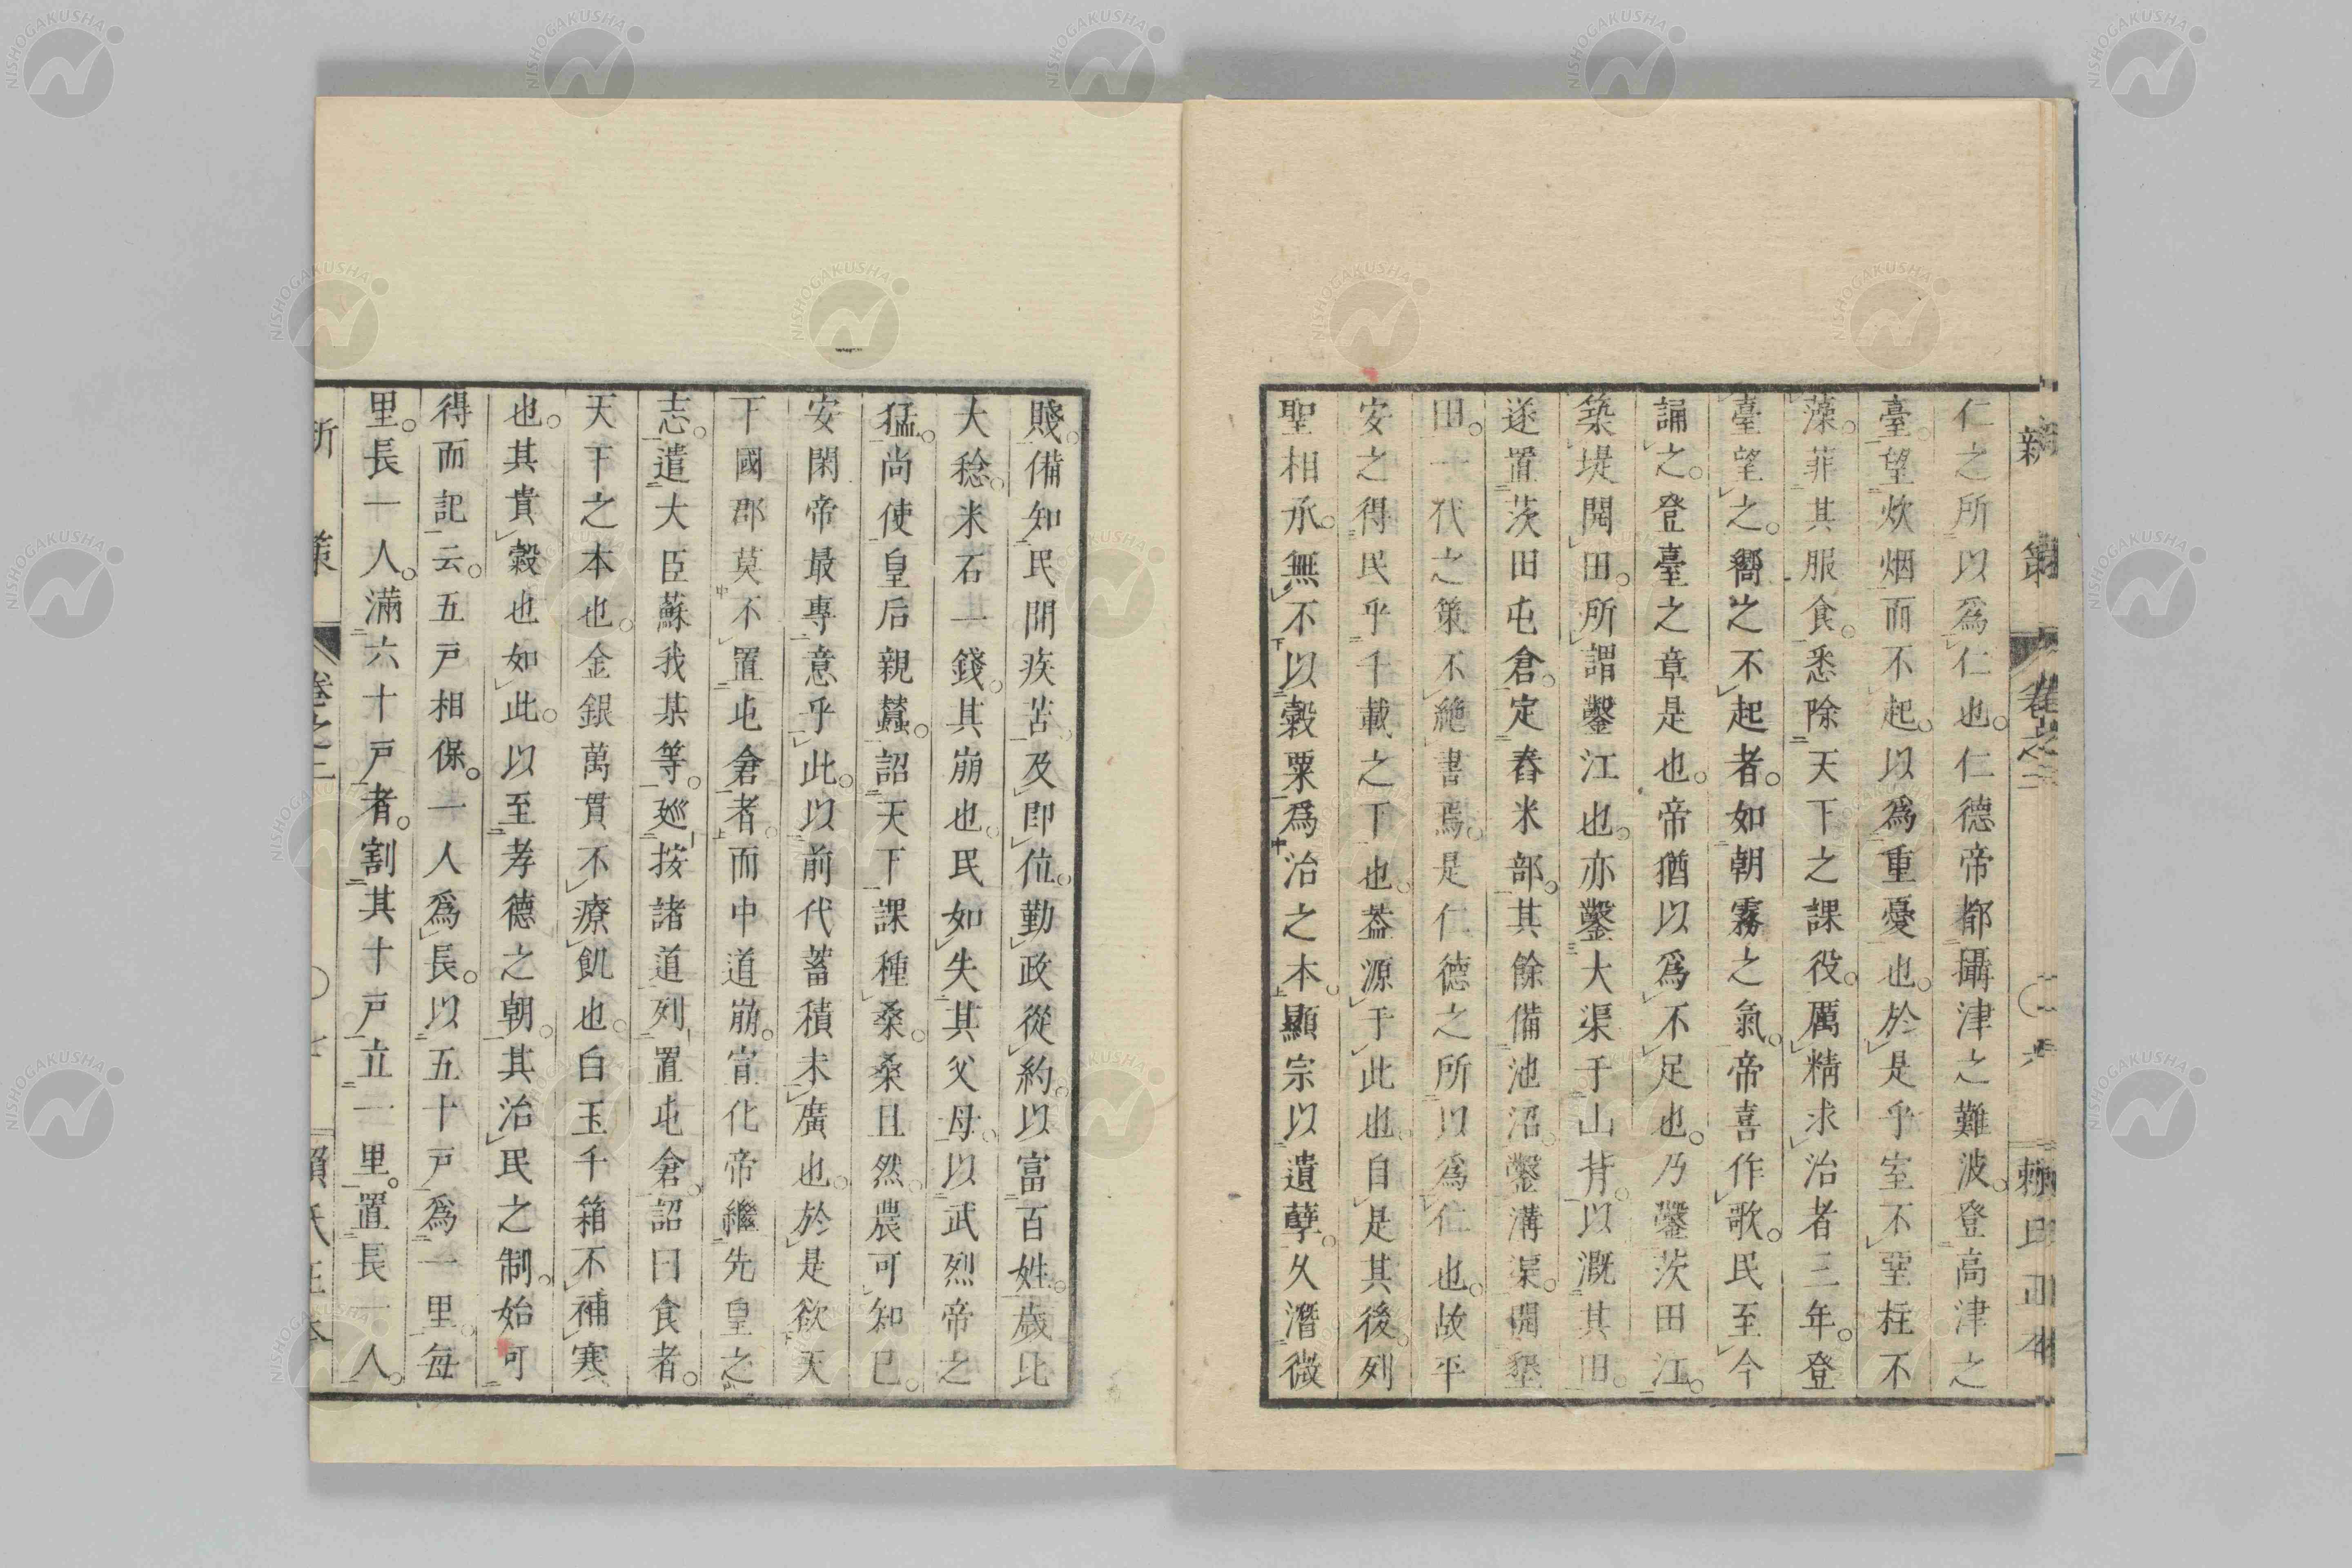 新策 卷之二 賴氏正本
仁之所以爲仁也。仁德帝都攝津之難波。登高津之
臺。望炊烟而不起。以爲重憂也。於是乎室不堊柱不
藻。菲其服食。悉除天下之課役。厲精求治者三年。登
臺望之。嚮之不起者。如朝霧之氣。帝喜作歌。民至今
誦之。登臺之章是也。帝猶以爲不足也。乃鑿茨田江。
築堤開田。所謂鑿江也。亦鑿大渠于山背。以溉其田。
遂置茨田屯倉。定舂米部。其餘備池沼。鑿溝渠。開墾
田。一代之策不絶書焉。是仁德之所以爲仁也。故平
安之得民乎千載之下也。葢源于此也。自是其後。列
聖相承。無不以穀粟爲治之本。顯宗以遺孽。久潛微
賤。備知民間疾苦。及即位。勤政從約。以富百姓。歳比
大稔。米石一錢。其崩也。民如失其父母。以武烈帝之
猛。尚使皇后親蠶。詔天下課種桑。桑且然。農可知已。
安閑帝最專意乎此。以前代蓄積未廣也。於是欲天
下國郡莫不置屯倉者。而中道崩。宣化帝繼先皇之
志。遣大臣蘇我某等。廵按諸道。列置屯倉。詔曰食者。
天下之本也。金銀萬貫不療飢也。白玉千箱不補寒
也。其貴穀也如此。以至孝德之朝。其治民之制。始可
得而記云。五戸相保。一人爲長。以五十戸爲一里。每
里。長一人。滿六十戸者。割其十戸立一里。置長一人。
卷之二